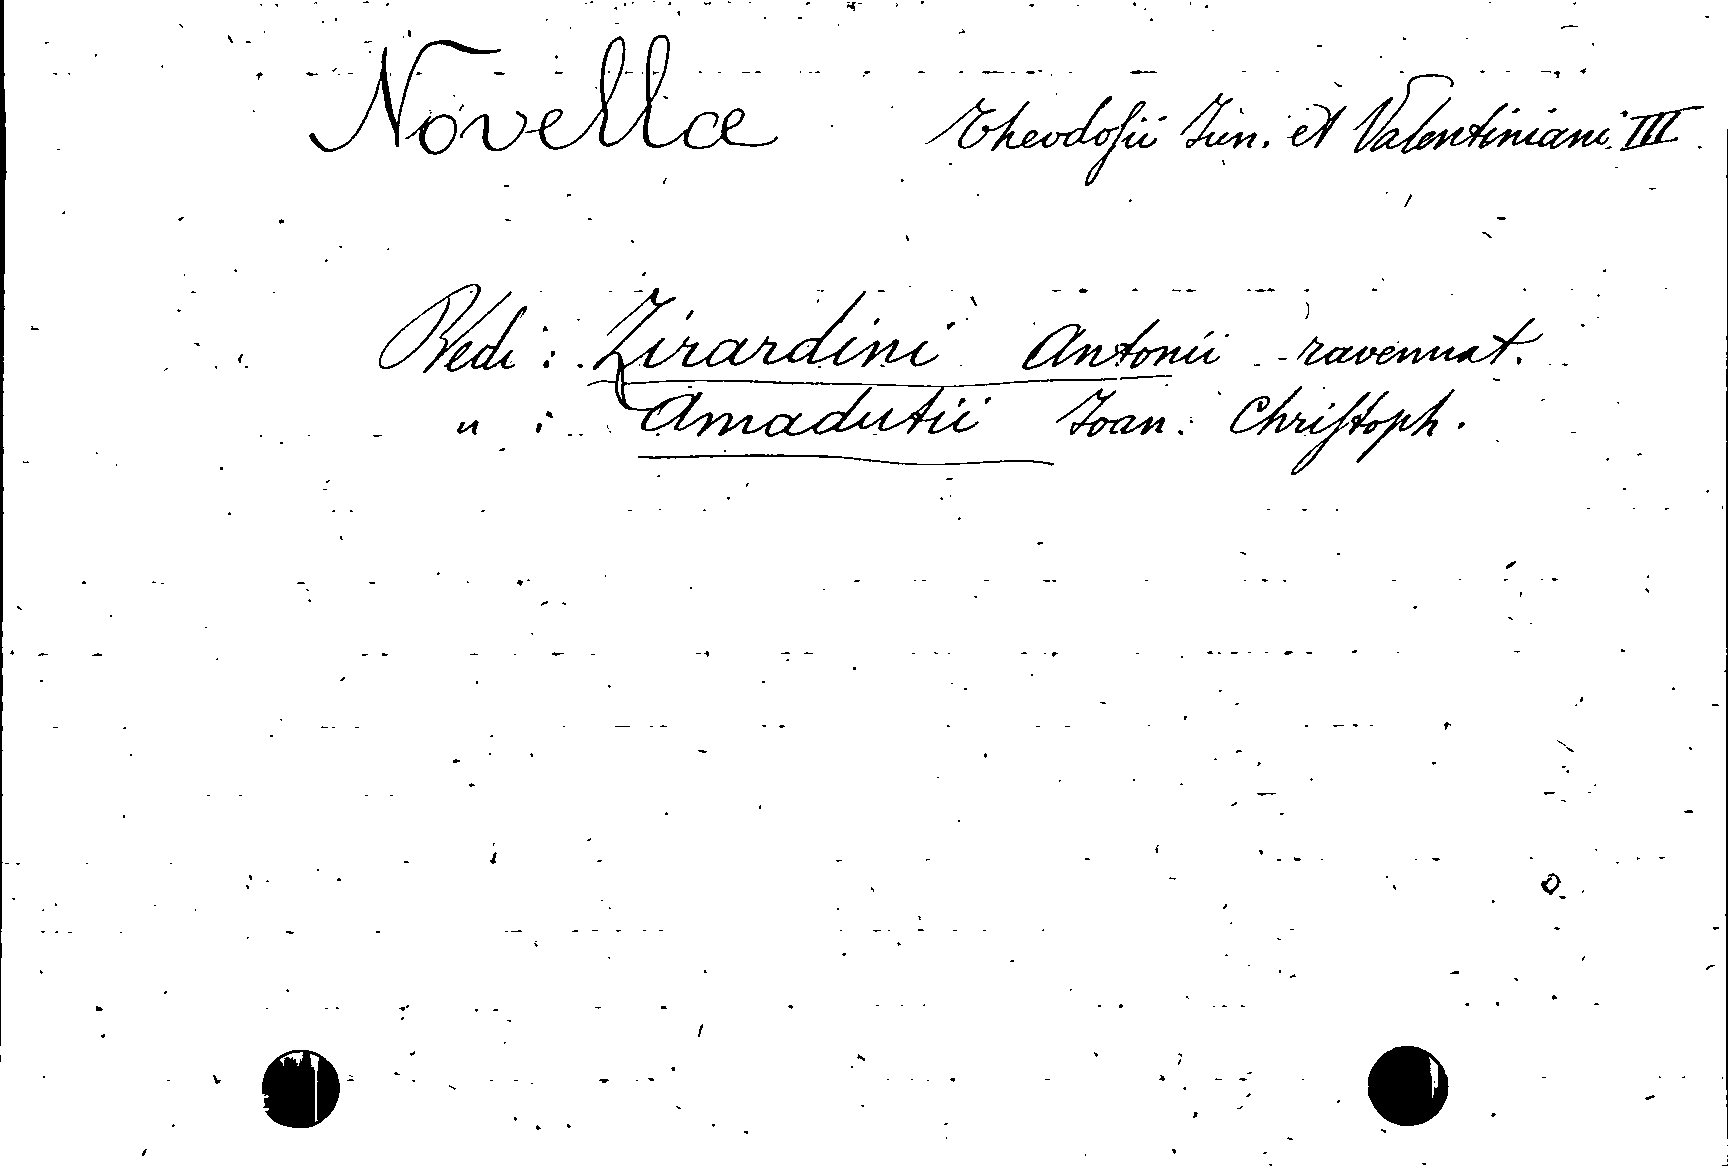 Novellæ Theodosii Iun. et Valentiniani III
Vedi: Zirardini Antonii ravennat.
" : Amadutii Ioan. Christoph.